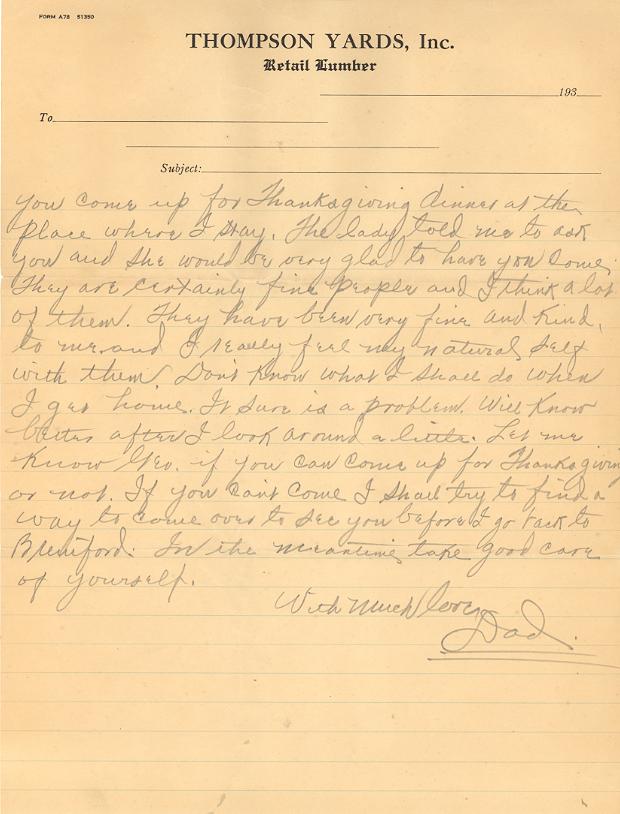 FORM A78 51350
THOMPSON YARDS, Inc.
Retail Lumber
193
To
Subject:
you come up for Thanksgiving dinner at the
place where I stay. The lady told me to ask
you and she would be very glad to have you come.
They are certainly fine people and I think a lot
of them. They have been very fine and kind,
to me and I really feel my natural self
with them. Don't know what I shall do when
I get home. It sure is a problem. Will know
better after I look around a little. Let me
know Geo. if you can come up for Thanksgiving
or not. If you can't come I shall try to find a
way to come over to see you before I go back to
In the meantime take good care
of yourself.
With much love,
Dad.